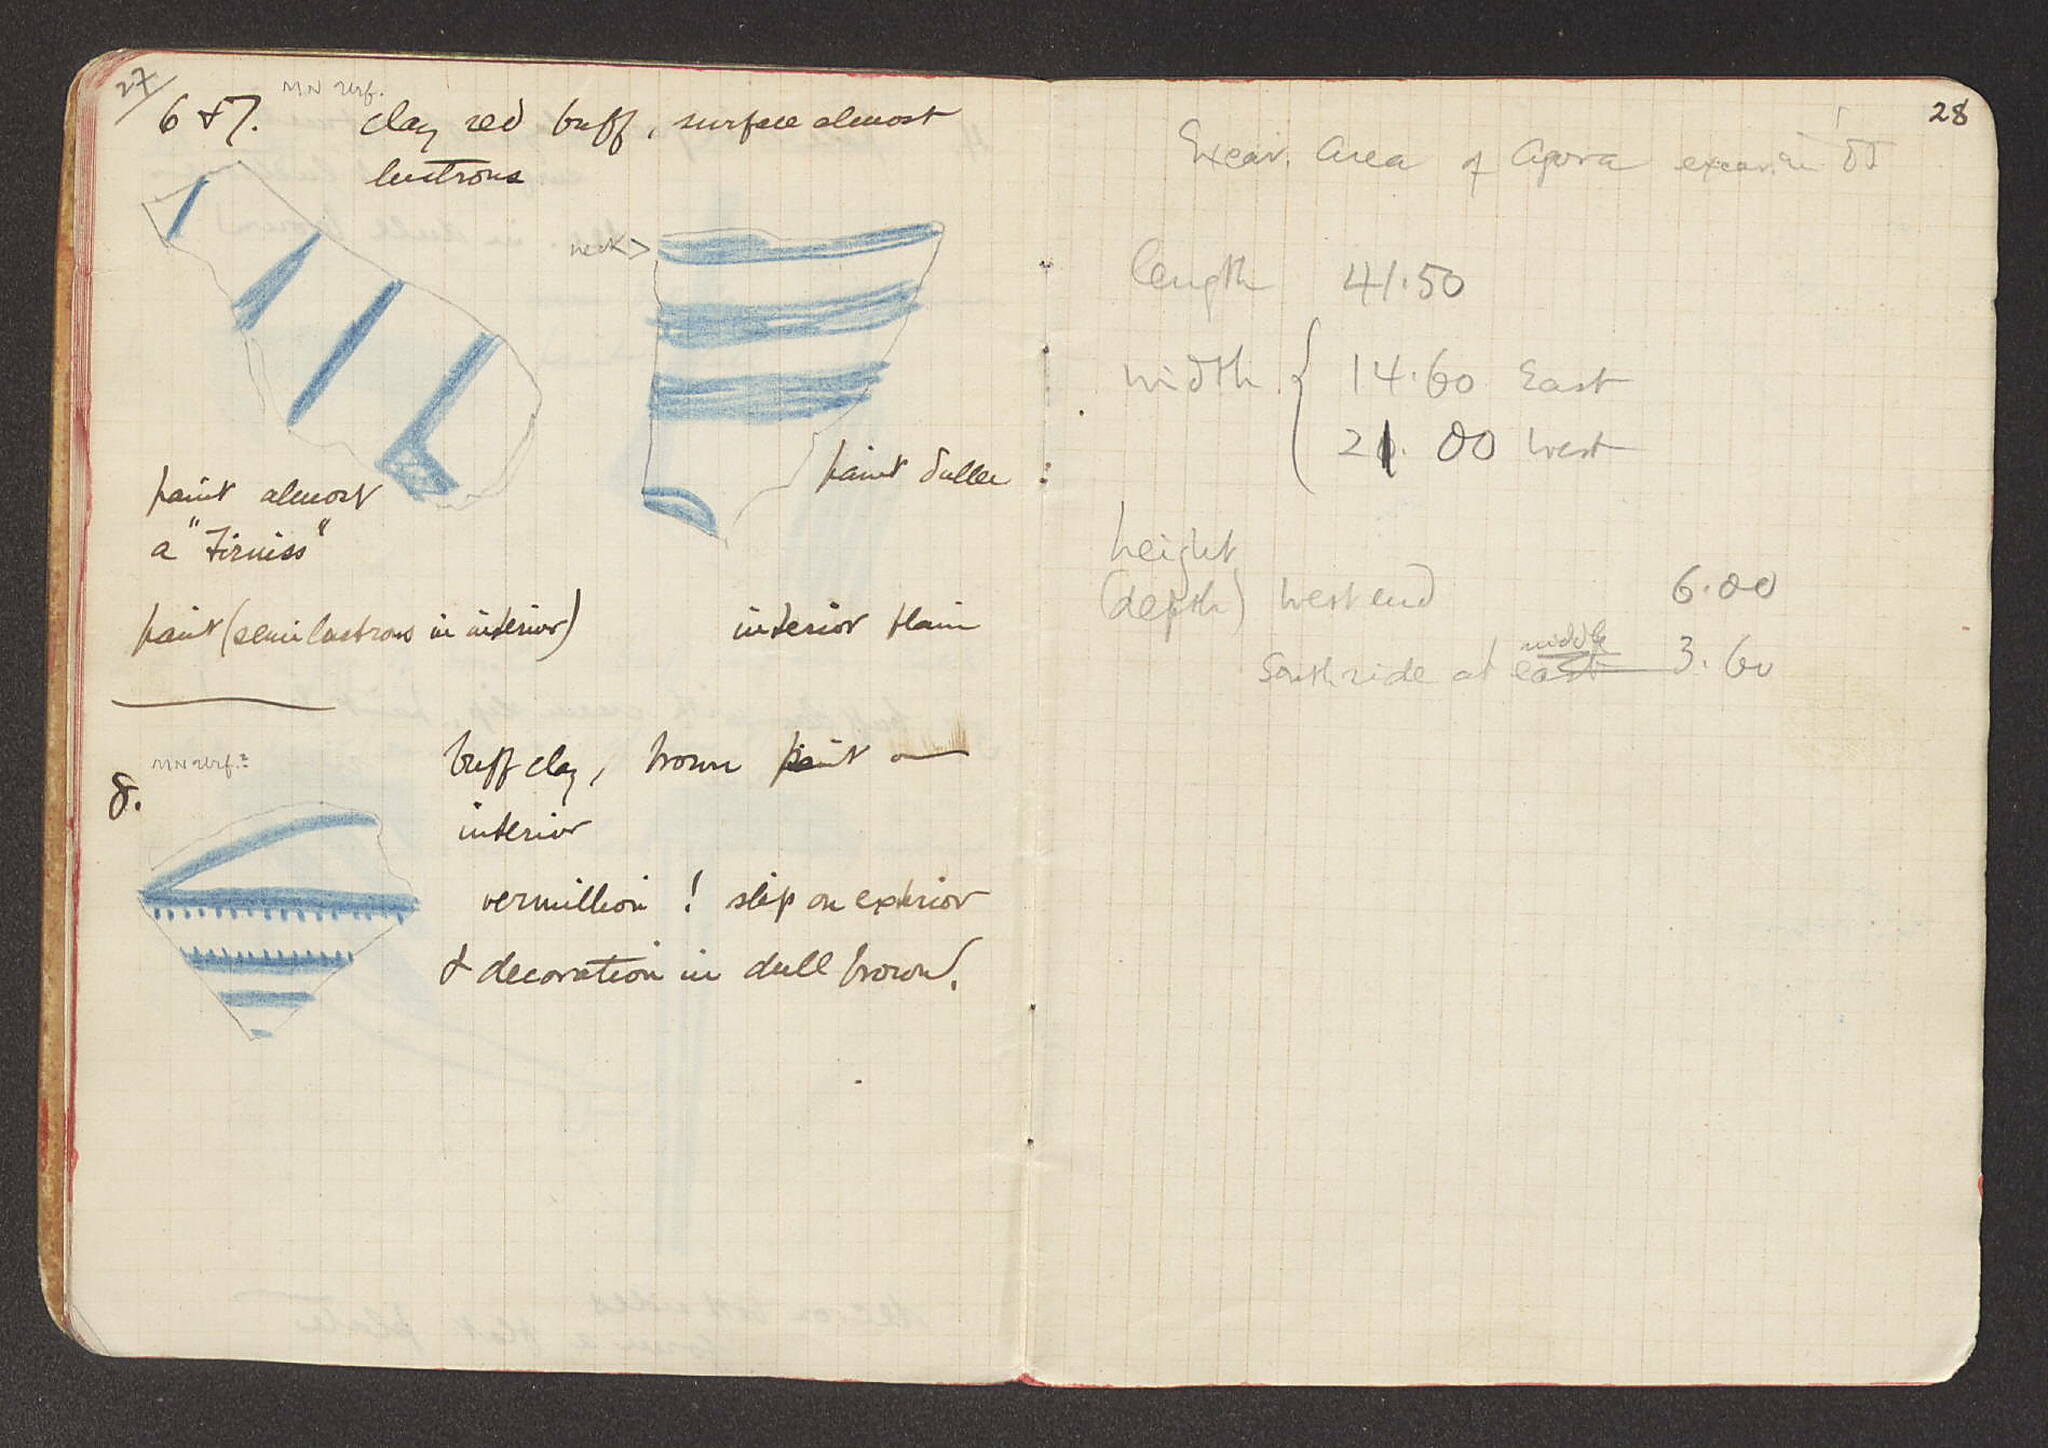 27
MN Urf.
6 & 7. clay red buff, surface almost
lustrous
neck >
paint duller
paint almost
a "Firniss"
paint (semi lustrous in interior)
interior plain
MN Urf.?
8.
buff clay, brown paint on
interior
vermillion ! slip on exterior
& decoration in dull brown.
28
Excav. Area of Agora excav. in
length 41.50
width { 14.60 East
21.00 West
height
(depth) West end 6.00
middle
South side at east 3.60